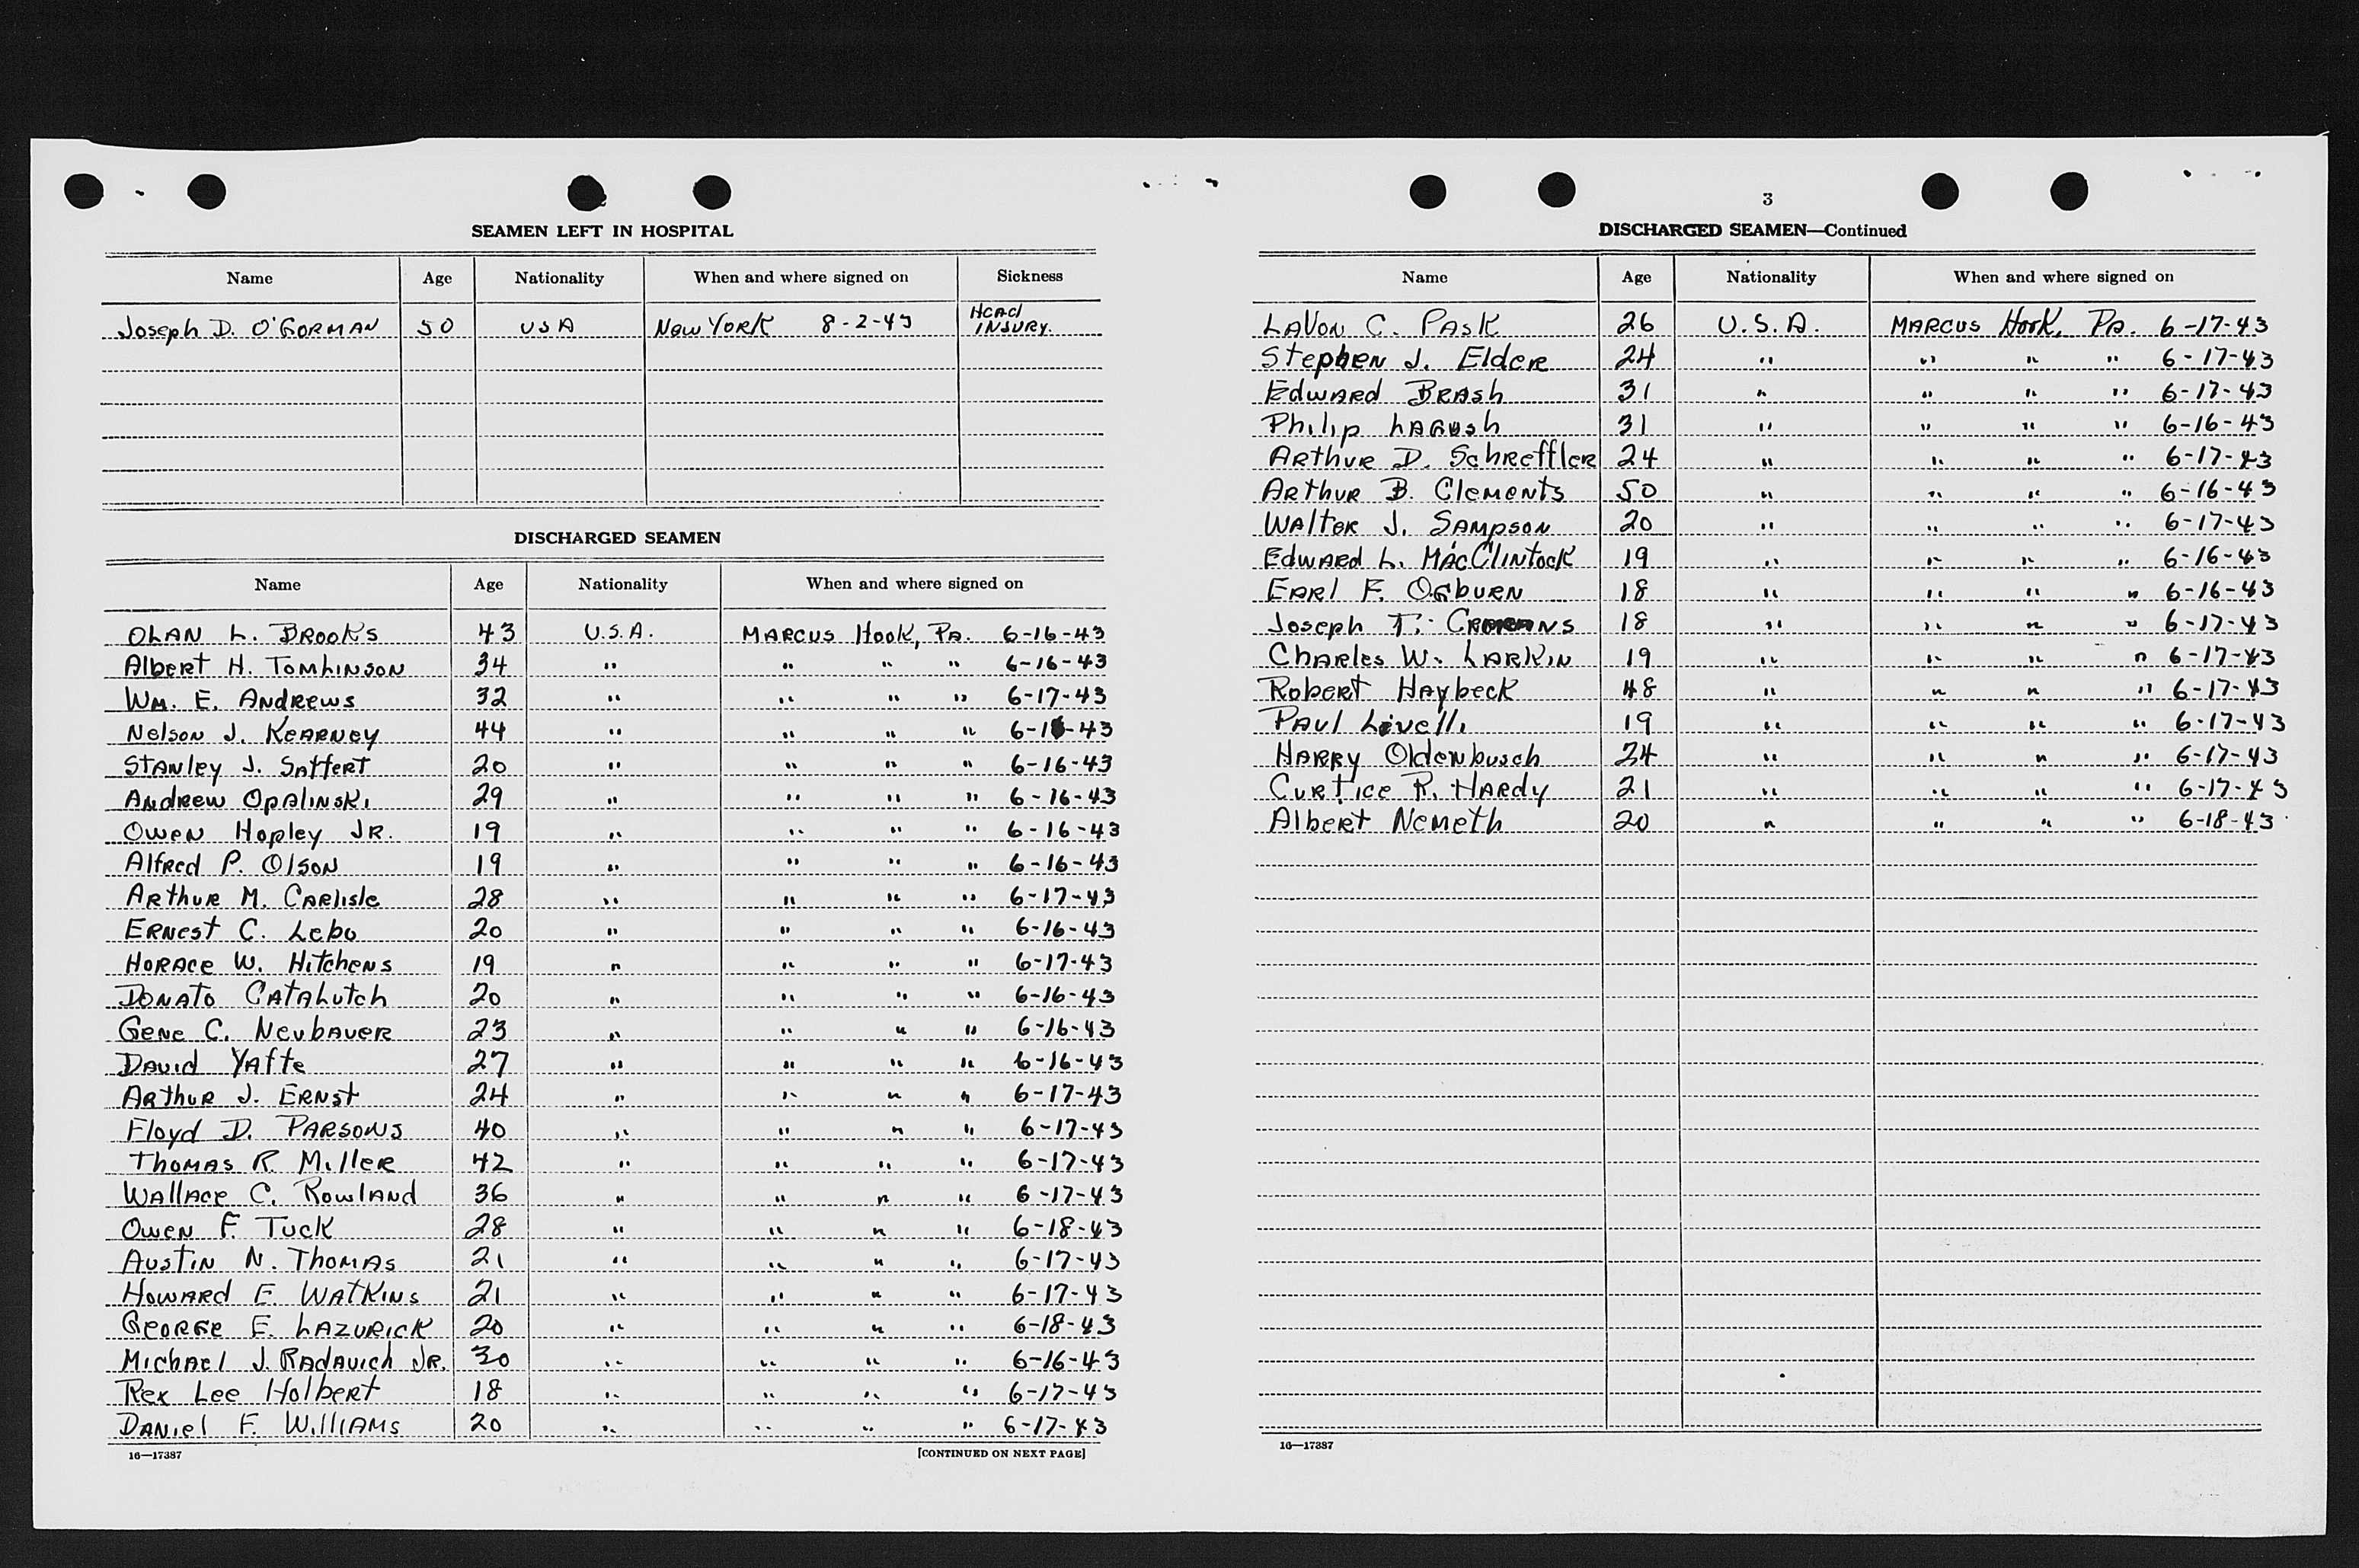 2
SEAMEN LEFT IN HOSPITAL
Name Age Nationality When and where signed on Sickness
Joseph D. O'Gorman 50 USA New York 8-2-43 Head Injury.
DISCHARGED SEAMEN
Name Age Nationality When and where signed on
Olan L. Brooks 43 U.S.A. Marcus Hook, Pa. 6-16-43
Albert H. Tomlinson 34 " " " " 6-16-43
Wm. E. Andrews 32 " " " " 6-17-43
Nelson J. Kearney 44 " " " "
Stanley J. Saffert 20 " " " " 6-16-43
Andrew Opalinski 29 " " " " 6-16-43
Owen Hopley Jr. 19 " " " " 6-16-43
Alfred P. Olson 19 " " " " 6-16-43
Arthur M. Carlisle 28 " " " " 6-17-43
Ernest C. Lebo 20 " " " " 6-16-43
Horace W. Hitchens 19 " " " " 6-17-43
Donato Catalutch 20 " " " " 6-16-43
Gene C. Neubauer 23 " " " " 6-16-43
David Yaffe 27 " " " " 6-16-43
Arthur J. Ernst 24 " " " " 6-17-43
Floyd D. Parsons 40 " " " " 6-17-43
Thomas R. Miller 42 " " " " 6-17-43
Wallace C. Rowland 36 " " " " 6-17-43
Owen F. Tuck 28 " " " " 6-18-43
Austin N. Thomas 21 " " " " 6-17-43
Howard E. Watkins 21 " " " " 6-17-43
George E. Lazurick 20 " " " " 6-18-43
Michael J. Radavich Jr. 30 " " " " 6-16-43
Rex Lee Holbert 18 " " " " 6-17-43
Daniel F. Williams 20 " " " " 6-17-43
16—17387 [CONTINUED ON NEXT PAGE]
3
DISCHARGED SEAMEN—Continued
Name Age Nationality When and where signed on
LaVon C. Pask 26 U.S.A. Marcus Hook, Pa. 6-17-43
Stephen J. Elder 24 " " " " 6-17-43
Edward Brash 31 " " " " 6-17-43
Philip Lagush 31 " " " " 6-16-43
Arthur D. Schreffler 24 " " " " 6-17-43
Arthur B. Clements 50 " " " " 6-16-43
Walter J. Sampson 20 " " " " 6-17-43
Edward L. MacClintock 19 " " " " 6-16-43
Earl F. Ogburn 18 " " " " 6-16-43
Joseph T. 18 " " " " 6-17-43
Charles W. Larkin 19 " " " " 6-17-43
Robert Haybeck 48 " " " " 6-17-43
Paul Livelli 19 " " " " 6-17-43
Harry Oldenbusch 24 " " " " 6-17-43
Curtice R. Hardy 21 " " " " 6-17-43
Albert Nemeth 20 " " " " 6-18-43
16—17387